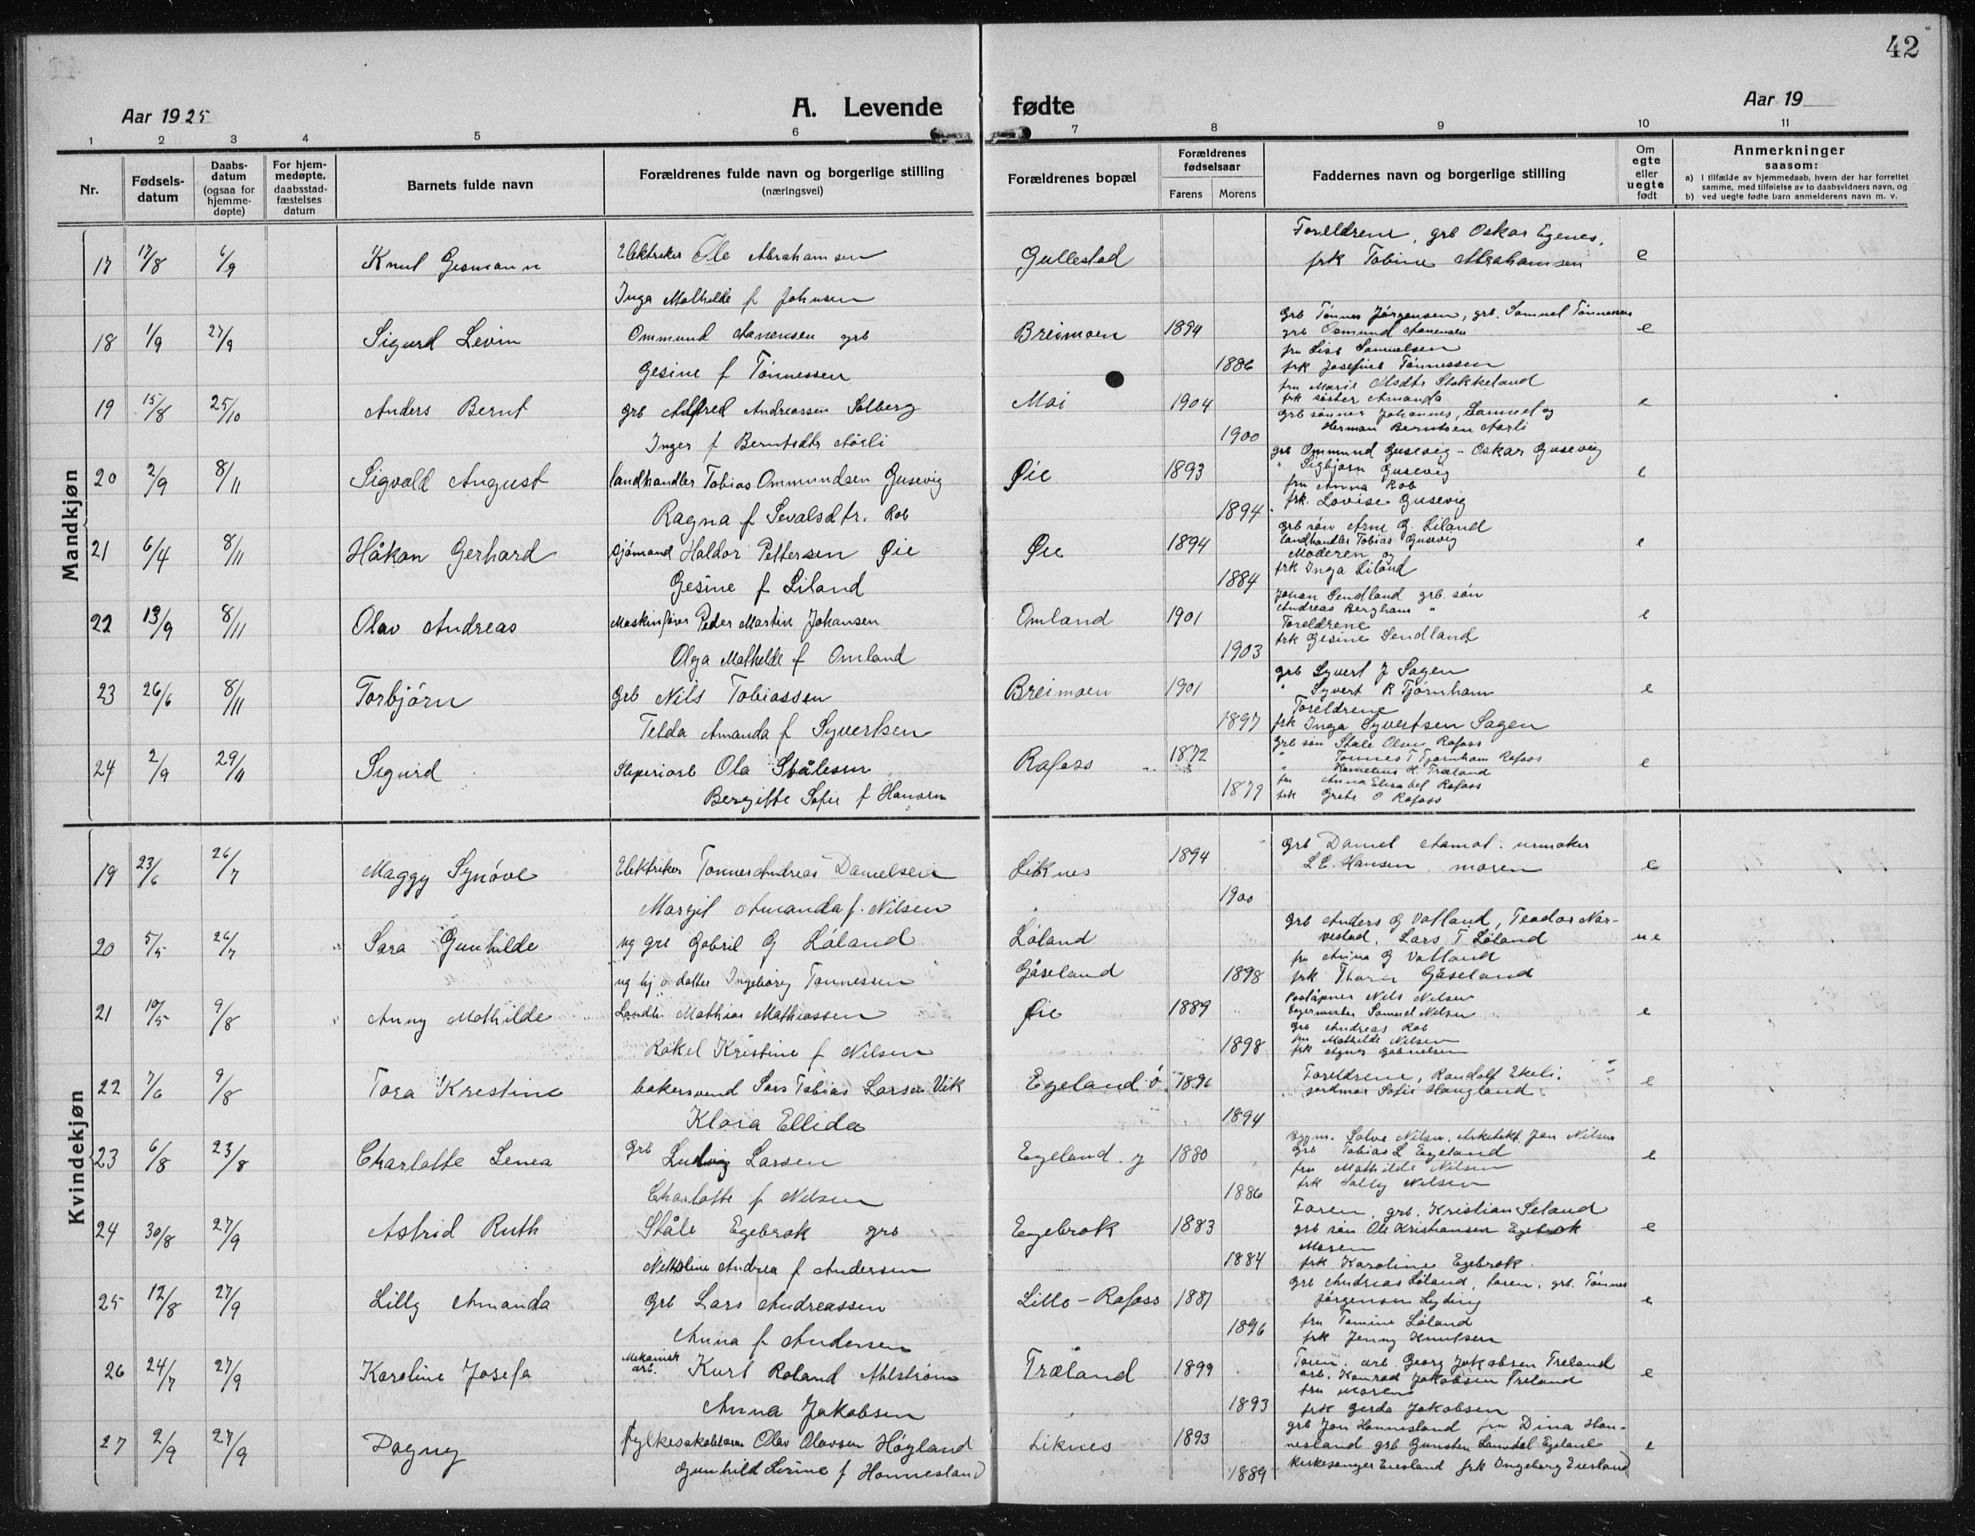 42
Aar 1925
A. Levende fødte
Aar 19
1 2 3 4 5 6 7 8 9 10 11
Nr.
Fødsels-
datum
Daabs-
datum
(ogsaa for
hjemme-
døpte)
For hjem-
medøpte,
daabsstad-
fæstelses
datum
Barnets fulde navn
Forældrenes fulde navn og borgerlige stilling
(næringsvei)
Forældrenes bopæl
Forældrenes
fødselsaar
Farens Morens
Faddernes navn og borgerlige stilling
Om
egte
eller
uegte
født
Anmerkninger
saasom:
a) I tilfælde av hjemmedaab, hvem der har forrettet
samme, med tilføielse av to daabsvidners navn, og
b) ved uegte fødte barn anmelderens navn m. v.
Mandkjøn
17 17/8 6/9 Knut Gesmann Elektriker Ole Abrahamsen Gullestad Foreldrene, grb Oskar Egenes, e
frk Tobine Abrahamsen
Inga Mathilde f Johnsen
18 1/9 27/9 Sigurd Levin Ommund Aanensen grb Breimoen 1894 grb Tønnes Jørgensen, grb. Samuel Tønnessen e
grb Osmund Aanensen
Gesine f Tønnessen 1886 fru Lise Samuelsen
frk Josefine Tønnessen
19 15/8 25/10 Anders Bernt grb Alfred Andreassen Solberg Moi 1904 fru Marie Olsdtr Stokkeland e
frk søster Amanda
Inger f Berntsdtr Aarli 1900 grb sønner Johannes, Samuel og
Herman Berntsen Aarli
20 2/9 8/11 Sigvald August landhandler Tobias Ommundsen Gusevig Øie 1893 grb Ommund Gusevig - Oskar Gusevig e
" Sigbjørn Gusevig
fru Anna Rob
Ragna f Sevalsdtr. Rob 1894 frk. Lovise Gusevig
21 6/4 8/11 Håkon Gerhard sjømand Haldor Pettersen Øie Øie 1894 grb søn Arne G. Liland e
landhandler Tobias Gusevig
Moderen og
Gesine f Liland 1884 frk Inga Liland
22 13/9 8/11 Olav Andreas Maskinfører Peder Martin Johansen Omland 1901 Johan Sendland grb. søn e
Andreas Bergham "
Foreldrene
Olga Mathilde f Omland 1903 frk Gesine Sendland
23 26/6 8/11 Torbjørn grb Nils Tobiassen Breimoen 1901 grb Syvert J Sagen e
" Syvert R Tjørnham
Foreldrene
Telda Amanda f Syvertsen 1897 frk Inga Syvertsen Sagen
24 2/9 29/11 Sigurd Sliperiarb Ola Stålesen Rafoss 1872 grb søn Ståle Olsen Rafoss e
" Tønnes T Tjørnham Rafoss
" Kornelius H. Træland
Bergitte Sofie f Hansen 1879 fru Anna Elisabet Rafoss
frk Grete O Rafoss
Kvindekjøn
19 23/6 26/7 Maggy Synøve Elektriker Tønnes Andreas Danielsen Liknes 1894 grb Daniel Aamot. urmaker e
L.E. Hansen moren
Margit Amanda f. Nilsen 1900
20 5/5 26/7 Sara Gunhilde ug grb Gabril G Løland Løland grb Anders G Vatland, Teodor Nar- ue
vestad, Lars T Løland
fru Anna G Vatland
ug hj o datter Ingeborg Tønnessen Gåseland 1898 frk Thora Gåseland
21 10/5 9/8 Anny Mathilde Landh. Mathias Mathiassen Øie 1889 Poståpner Nils Nilsen e
Samuel Nilsen
grb Andreas Rob
Rakel Kristine f Nilsen 1898 fru Mathilde Nilsen
frk Agnes Gabrielsen
22 7/6 9/8 Tora Kristine bakersvend Lars Tobias Larsen Vik Egeland ø. 1896 Foreldrene, Randolf Ekeli. e
jordmor Sofie Haugland
Klara Ellida 1894
23 6/8 23/8 Charlotte Lenea grb Ludvig Larsen Egeland y 1880 Bygm. Salve Nilsen. Arkitekt Jan Nilsen e
grb Tobias L Egeland
fru Mathilde Nilsen
Charlotte f Nilsen 1886 frk Hally Nilsen
24 30/8 27/9 Astrid Ruth Ståle Egebrok grb Egebrok 1883 Faren, grb. Kristian Seland e
grb søn Ole Kristiansen Egebrok
Moren
Andrea f Andersen 1884 frk Karoline Egebrok.
25 12/8 27/9 Lilly Amanda grb Lars Andreassen Lillo-Rafoss 1881 grb Andreas Løland, faren, grb. Tønnes e
Jørgensen
fru Tomine Løland
Anna f Andersen 1896 frk Jenny Knutsen
26 24/7 27/9 Karoline Josefa Mekanisk arb. Kurt Roland Ahlstrøm Træland 1899 arb Georg Jakobsen Treland e
arb. Konrad Jakobsen Treland
fru moren
Anna Jakobsen 1893 frk Gerda Jakobsen
27 2/9 27/9 Dagny Olav Olavsen Høyland Liknes 1893 grb Jon Hannesland fru Dina Han- e
nesland grb Gunsten Egeland
Gunhild Serine f Hannesland 1889 Kirkesanger Eiesland frk Ingeborg Eiesland